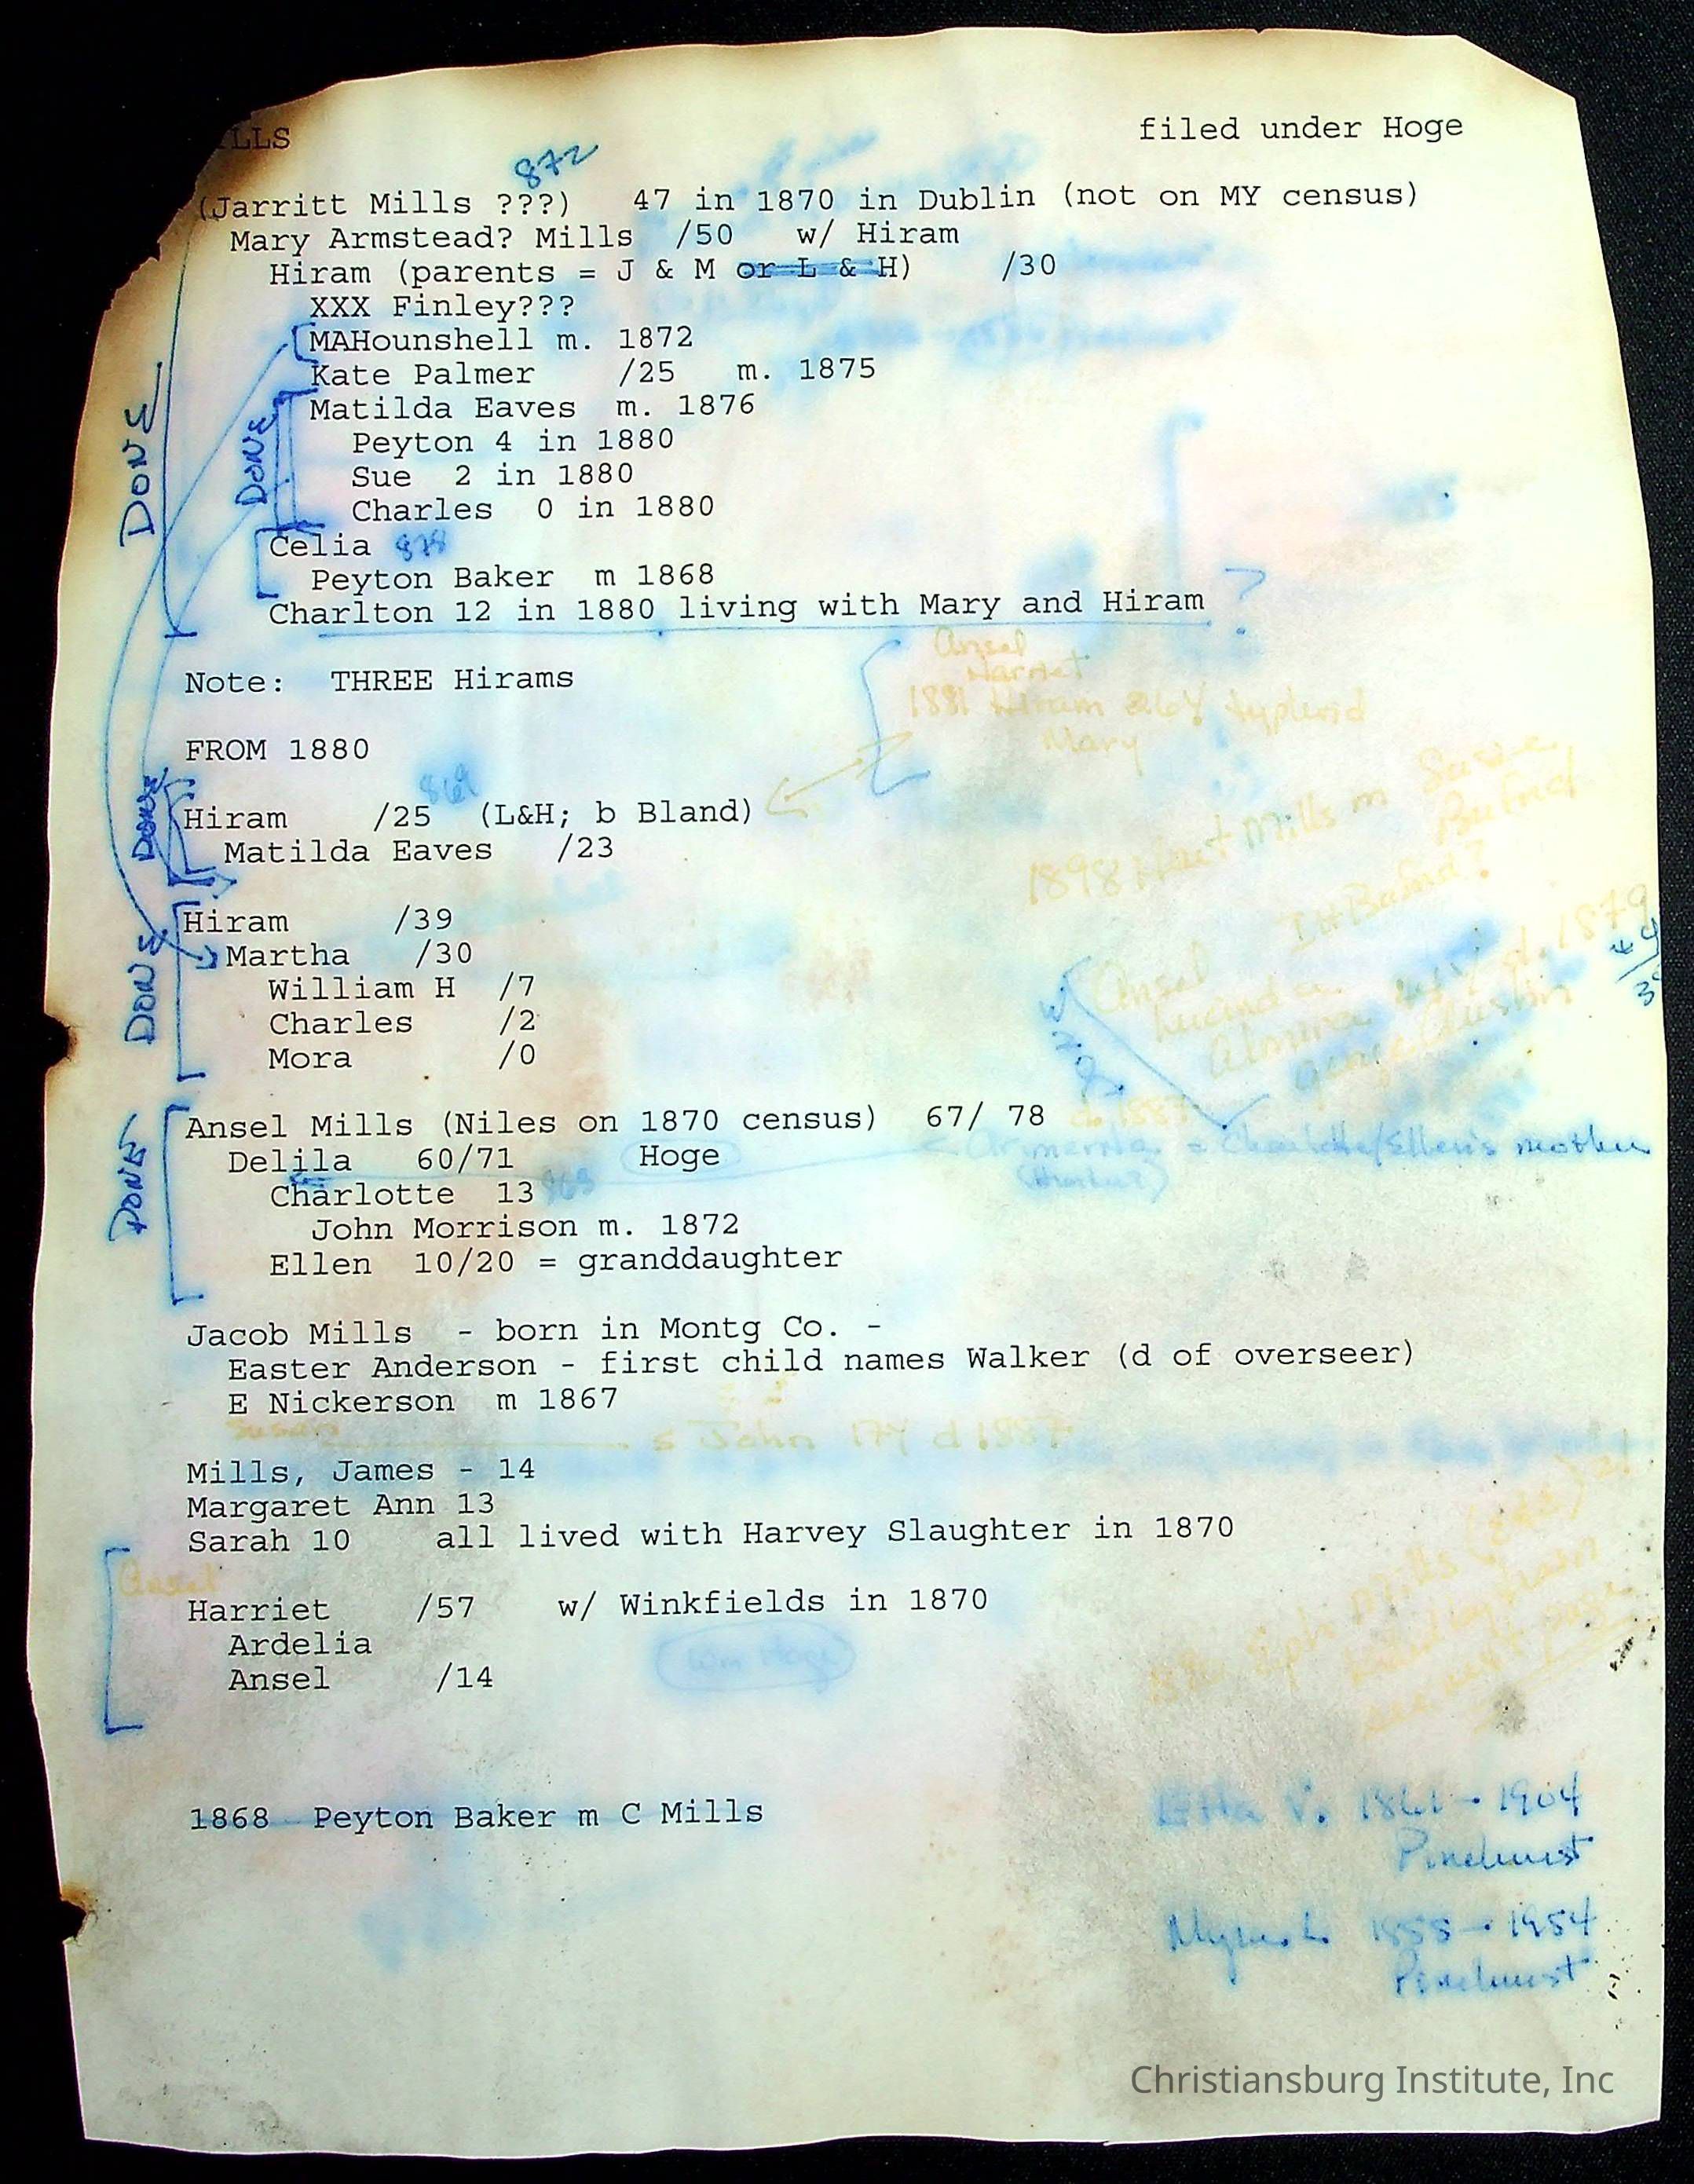 LLS filed under Hoge
872
(Jarritt Mills ???) 47 in 1870 in Dublin (not on MY census)
Mary Armstead? Mills /50 w/ Hiram
Hiram (parents = J & M or L & H) /30
XXX Finley???
MAHounshell m. 1872
Kate Palmer /25 m. 1875
Matilda Eaves m. 1876
Peyton 4 in 1880
Sue 2 in 1880
Charles 0 in 1880
DONE
DONE
Celia
Peyton Baker m 1868
Charlton 12 in 1880 living with Mary and Hiram ?
Ansel
Harriet
Note: THREE Hirams
1881 Hiram 26Y typhoid
Mary
FROM 1880
869
Hiram /25 (L&H; b Bland)
Matilda Eaves /23
DONE
1898 Mills m Susie
Buford
Hiram /39
Martha /30
William H /7
Charles /2
Mora /0
DONE
Ansel
d. 1879
Ansel Mills (Niles on 1870 census) 67/ 78 d. 1887
Delila 60/71 Hoge = Charlotte/Ellen's mother
Charlotte 13
John Morrison m. 1872
Ellen 10/20 = granddaughter
DONE
Jacob Mills - born in Montg Co. -
Easter Anderson - first child names Walker (d of overseer)
E Nickerson m 1867
Susan s John 17Y d 1887
Mills, James - 14
Margaret Ann 13
Sarah 10 all lived with Harvey Slaughter in 1870
Ansel
Harriet /57 w/ Winkfields in 1870
Ardelia
Wm Hoge
Ansel /14
1868 Peyton Baker m C Mills
Etta V. 1861 - 1904
Pinehurst
1954
Pinehurst
Christiansburg Institute, Inc